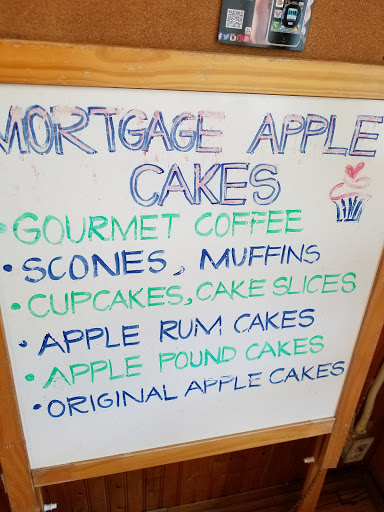 MORTGAGE APPLE
CAKES
• GOURMET COFFEE
• SCONES, MUFFINS
• CUPCAKES, CAKE SLICES
• APPLE RUM CAKES
• APPLE POUND CAKES
• ORIGINAL APPLE CAKES